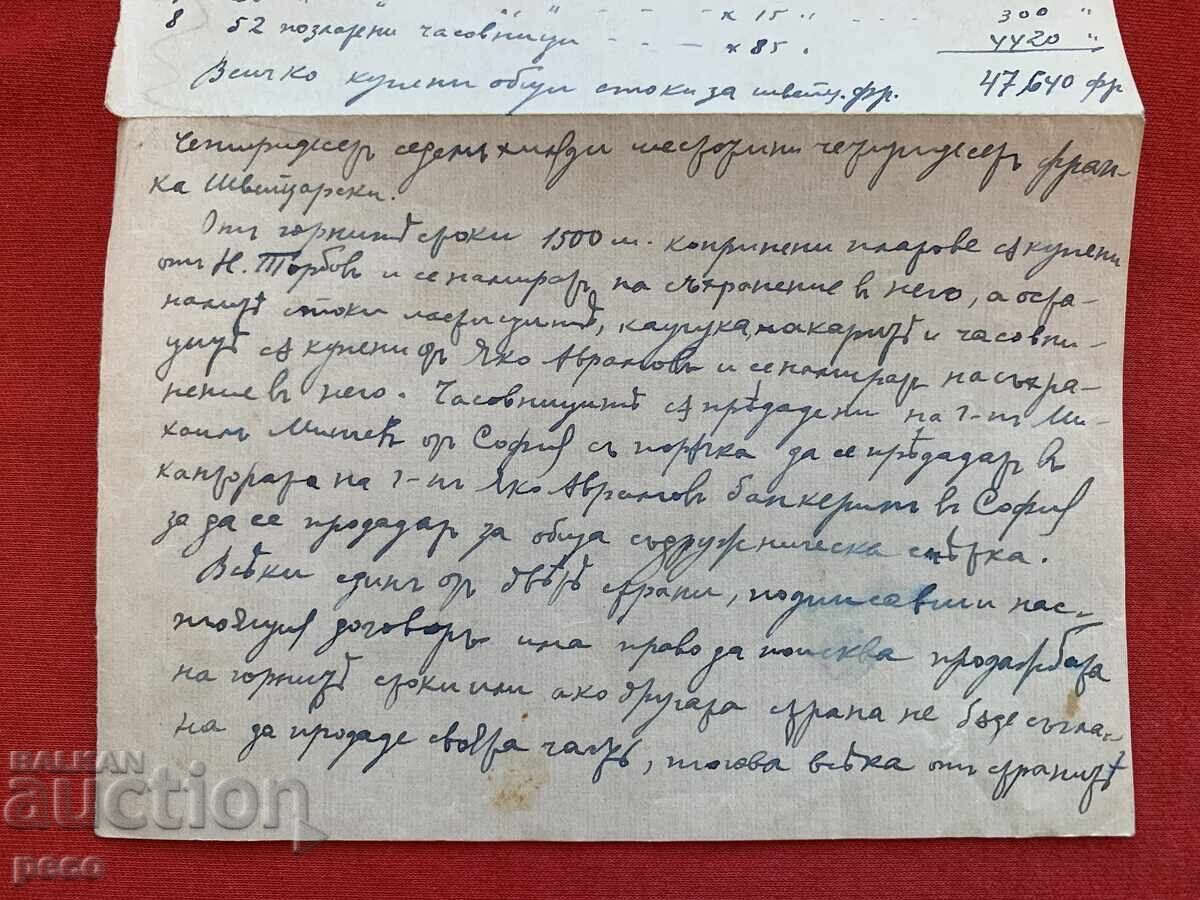 8 52 позлатени часовници - - - х 85. 4420 "
х 15 " - - - 300 "
Всичко купени общи стоки за швейц. фр. 47,640 фр
Четиридесет седемь хиляди шестотини четиридесет фран-
ка Швейцарски.
Отъ горнитѣ стоки 1500 м. копринени платове сѫ купени
отъ Н. Торбовъ и се намиратъ на съхранение в него, а оста-
налитѣ стоки , каучука, макаритѣ и часовни-
цитѣ сѫ купени отъ Яко Аврамовъ и се намиратъ на съхра-
нение въ него. Часовницитѣ сѫ прѣдадени на г-нъ Ми-
хаилъ Митевъ отъ София съ поръчка да се прѣдадатъ в
кантората на г-нъ Яко Аврамовъ банкеринъ въ София
за да се продадатъ за обща съдружническа смѣтка.
Всѣки единъ отъ двѣтѣ страни, подписавши нас-
тоящия договоръ има право да поисква продажбата
на горнитѣ стоки или ако другата страна не бѫде съглас-
на да продаде своята часть, тогова всѣка отъ странитѣ
BALKAN
auction
peco